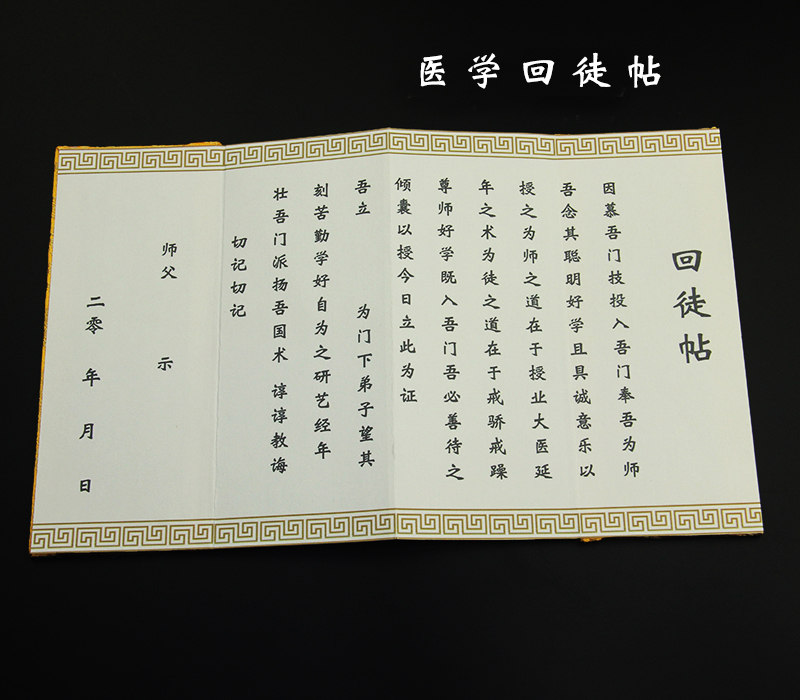 医学回徒帖
回徒帖
因慕吾门技投入吾门奉吾为师
吾念其聪明好学且具诚意乐以
授之为师之道在于授业大医延
年之术为徒之道在于戒骄戒躁
尊师好学既入吾门吾必善待之
倾囊以授今日立此为证
吾立 为门下弟子望其
刻苦勤学好自为之研艺经年
壮吾门派扬吾国术 谆谆教诲
切记切记
师父 示
二零 年 月 日